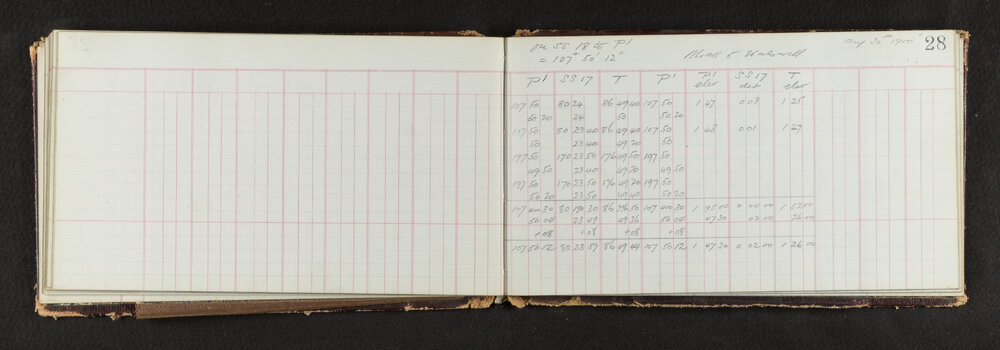 on SS 18 to P1 Aug 30th 28
= 107° 50' 12"
P1 SS17 T P1 P1 elev SS17 T elev
107 50 80 24 86 49 40 107 50 1 47 0 03 1 25
60 20 24 50 50 20
107 50 80 23 40 86 49 40 107 50 1 48 0 01 1 27
50 23 40 49 20 50
197 50 170 23 50 176 49 50 197 50
49 50 23 40 49 20 49 50
197 50 170 23 50 176 49 20 197 50
50 20 23 50 49 40 50 20
107 400 30 80 190 30 86 396 50 107 400 30 1 95 00 0 04 00 1 52 00
50 04 23 49 49 36 50 04 47 30 02 00 26 00
+08 +08 +08 +08
107 50 12 80 23 57 86 49 44 107 50 12 1 47 30 0 02 00 1 26 00